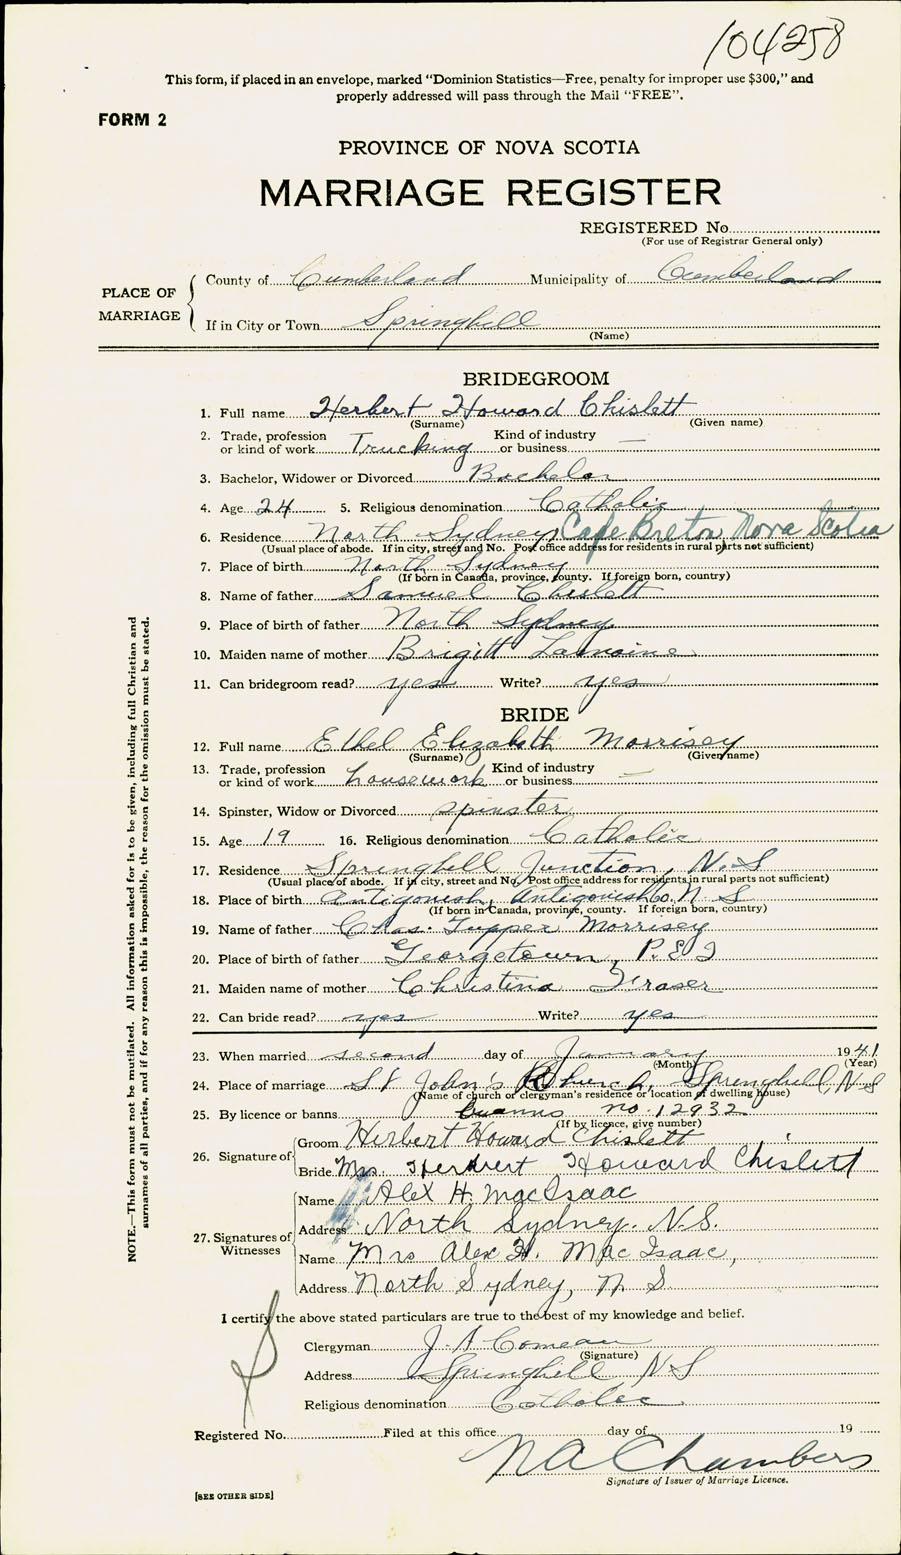 104258
This form, if placed in an envelope, marked “Dominion Statistics—Free, penalty for improper use $300,” and
properly addressed will pass through the Mail “FREE”.
FORM 2
PROVINCE OF NOVA SCOTIA
MARRIAGE REGISTER
REGISTERED No.
(For use of Registrar General only)
PLACE OF MARRIAGE
County of Cumberland Municipality of Cumberland
If in City or Town Springhill
(Name)
BRIDEGROOM
1. Full name Herbert Howard Chislett
(Surname) (Given name)
2. Trade, profession or kind of work Trucking Kind of industry or business —
3. Bachelor, Widower or Divorced Bachelor
4. Age 24 5. Religious denomination Catholic
6. Residence North Sydney, Cape Breton, Nova Scotia
(Usual place of abode. If in city, street and No. Post office address for residents in rural parts not sufficient)
7. Place of birth North Sydney
(If born in Canada, province, county. If foreign born, country)
8. Name of father Samuel Chislett
9. Place of birth of father North Sydney
10. Maiden name of mother Brigitt
11. Can bridegroom read? yes Write? yes
BRIDE
12. Full name Ethel Elizabeth Morrisey
(Surname) (Given name)
13. Trade, profession or kind of work housework Kind of industry or business —
14. Spinster, Widow or Divorced spinster
15. Age 19 16. Religious denomination Catholic
17. Residence Springhill Junction, N.S
(Usual place of abode. If in city, street and No. Post office address for residents in rural parts not sufficient)
18. Place of birth Antigonish, Antigonish Co. N S
(If born in Canada, province, county. If foreign born, country)
19. Name of father Chas. Tupper Morrisey
20. Place of birth of father Georgetown, P.E.I
21. Maiden name of mother Christina Fraser
22. Can bride read? yes Write? yes
23. When married second day of January 1941
(Month) (Year)
24. Place of marriage St John's Church, Springhill, N S
(Name of church or clergyman's residence or location of dwelling house)
25. By licence or banns no. 12932
(If by licence, give number)
26. Signature of
Groom Herbert Howard Chislett
Bride Mrs. Herbert Howard Chislett
27. Signatures of Witnesses
Name Alex H. MacIsaac
Address North Sydney. N.S.
Name Mrs Alex H. MacIsaac,
Address North Sydney, N S
I certify the above stated particulars are true to the best of my knowledge and belief.
Clergyman J. A Comeau
(Signature)
Address Springhill N S
Religious denomination Catholic
Registered No. Filed at this office day of 19
N A Chambers
Signature of Issuer of Marriage Licence.
[SEE OTHER SIDE]
NOTE.—This form must not be mutilated. All information asked for is to be given, including full Christian and
surnames of all parties, and if for any reason this is impossible, the reason for the omission must be stated.